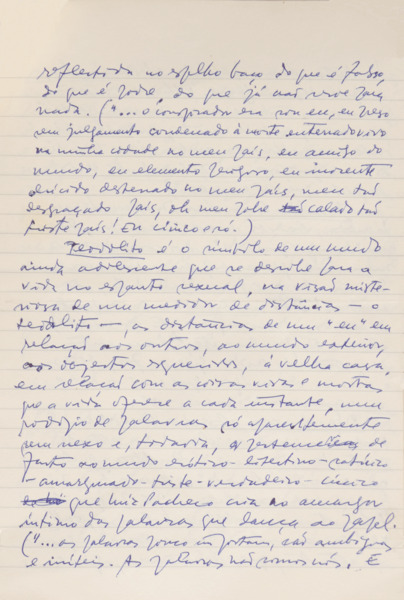 reflectida no espelho baço do que é falso
do que é podre, do que já não serve para
nada. ("...o conspirador era eu, eu preso
em julgamento condenado à morte enterrado vivo
na minha cidade no meu país, eu amigo do
mundo, eu elemento perigoso, eu inocente
desterrado no meu país, meu
desgraçado país, oh meu pobre calado
triste país! Eu cinco e pó.)
Teodolito é o símbolo de um mundo
ainda adolescente que se descobre para a
vida no espanto sexual, na visão miste-
riosa de um medidor de distâncias — o
teodolito —, as distâncias de um "eu" em
relação aos outros, ao mundo exterior,
aos objectos esquecidos, à velha casa,
em relação com as coisas vivas e mortas
que a vida oferece a cada instante, num
prodígio de palavras só aparentemente
sem nexo e, todavia, pertencentes de
facto ao mundo erótico-libertino-satírico
-amargurado-triste-verdadeiro-cínico
que Luiz Pacheco cria no amargor
íntimo das palavras que lança ao papel.
("...as palavras pouco importam, são ambíguas
e inúteis. As palavras não somos nós. E